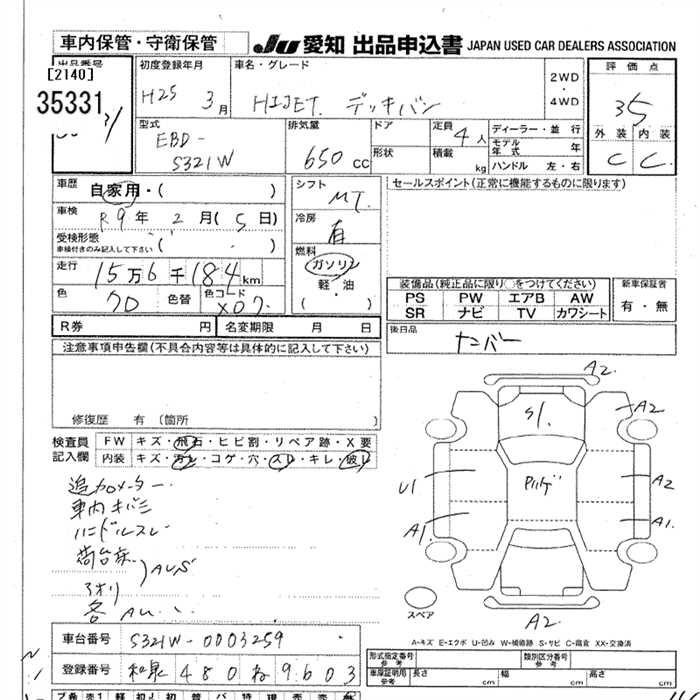 車内保管・守衛保管
JU 愛知 出品申込書 JAPAN USED CAR DEALERS ASSOCIATION
出品番号
[2140]
35331
初度登録年月
H25 3月
車名・グレード
HIJET. デッキバン
2WD
・
4WD
評価点
3.5
外装 内装
C C
型式
EBD-
S321W
排気量
650cc
ドア
形状
定員 4人
積載 kg
ディーラー・並行
モデル年式 年
ハンドル 左・右
車歴 自家用・( )
車検 R9年 2月(5日)
受検形態
車検付きのみ記入して下さい ( )
走行 15万6千184km
色 クロ 色替 色コード X07
シフト MT.
冷房 有
燃料
ガソリン
軽・油
( ・ )
セールスポイント(正常に機能するものに限ります)
装備品(純正品に限り○をつけてください)
PS PW エアB AW
SR ナビ TV カワシート
新車保証書
有・無
後日品 ナンバー
R券 円 名変期限 月 日
注意事項申告欄(不具合内容等は具体的に記入して下さい)
修復歴 有 (箇所 )
検査員記入欄
FW キズ・飛石・ヒビ割・リペア跡・X要
内装 キズ・汚レ・コゲ・穴・スレ・キレ・破レ
追加メーター
車内キバミ
ハンドルスレ
荷台床
アオリ
AUS
各AU
A2
A2
S1.
U1
Pルーゲ
A2
A1.
A1.
スペア
A2
A-キズ E-エクボ U-凹み W-補修跡 S-サビ C-腐食 XX-交換済
車台番号 S321W-0003259
登録番号 和泉 480 ね 9603
形式指定番号
参考
類別区分番号
参考
車庫証明用
参考
長さ cm 幅 cm 高さ cm